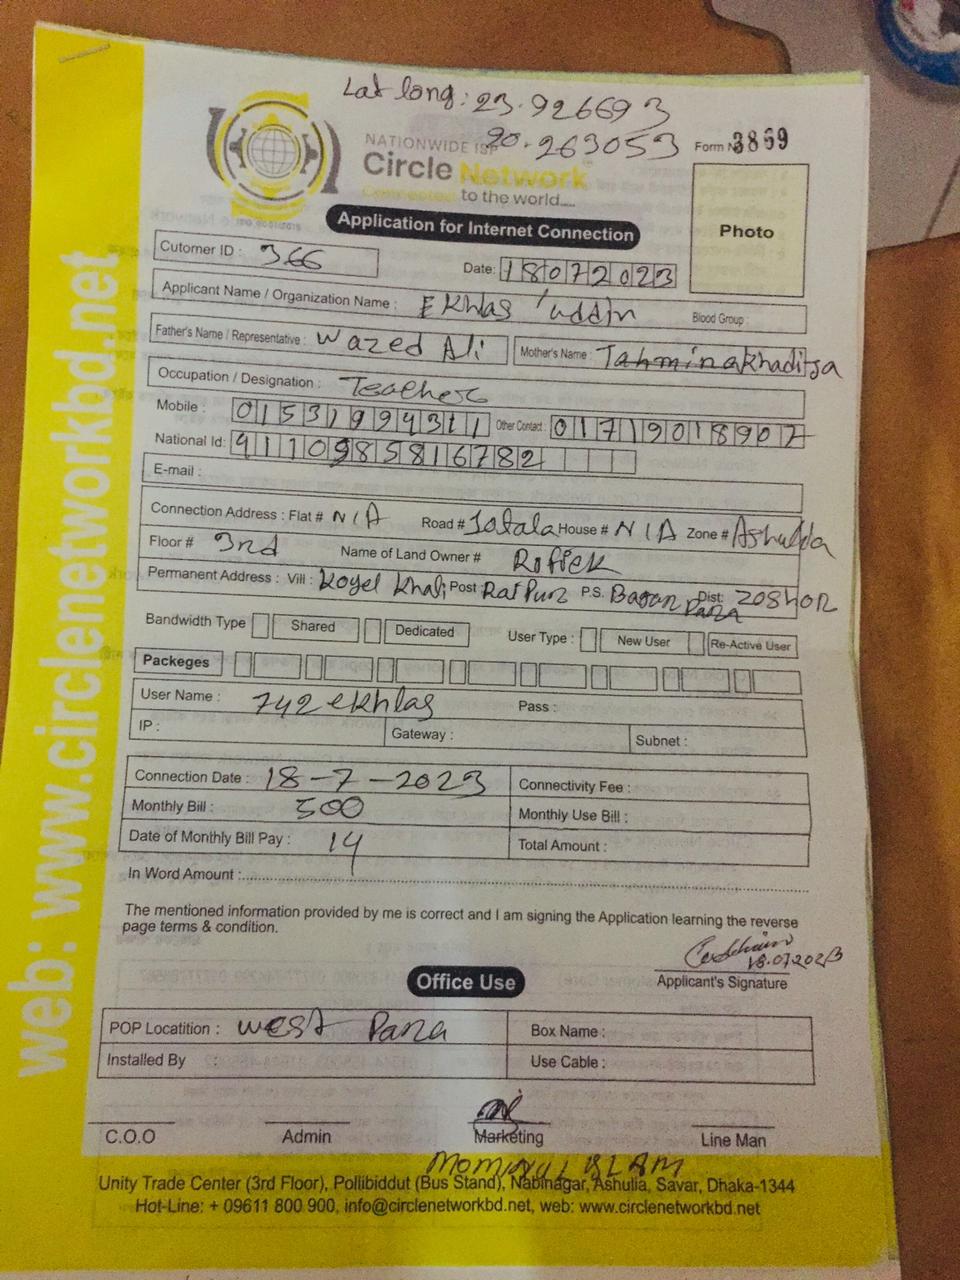 Lat long: 23.926693
90.263053
NATIONWIDE ISP
Form N 3869
Circle Network
Connected to the world.....
Photo
Application for Internet Connection
Cutomer ID : 366
Date: 18072023
Applicant Name / Organization Name : Ekhlas 'uddin
Blood Group :
Father's Name / Representative : Wazed Ali Mother's Name : Tahminakhaditja
Occupation / Designation : Teacher
Mobile : 01531994311 Other Contact : 01719018907
National Id: 4111098581678 2
E-mail :
Connection Address : Flat # N/A Road # Jotala House # N/A Zone # Ashulda
Floor # 3rd Name of Land Owner # Roffek
Permanent Address : Vill : Koyel Khali Post : RaiPur P.S. Bagar Para Dist: Joshor
Bandwidth Type Shared Dedicated User Type : New User Re-Active User
Packeges
User Name : 742ekhlas Pass :
IP : Gateway : Subnet :
Connection Date : 18-7-2023 Connectivity Fee :
Monthly Bill : 500 Monthly Use Bill :
Date of Monthly Bill Pay : 14 Total Amount :
In Word Amount :
The mentioned information provided by me is correct and I am signing the Application learning the reverse
page terms & condition.
18.07.2023
Applicant's Signature
Office Use
POP Locatition : West Para Box Name :
Installed By : Use Cable :
C.O.O Admin Marketing Line Man
Mominul Islam
Unity Trade Center (3rd Floor), Pollibiddut (Bus Stand), Nabinagar, Ashulia, Savar, Dhaka-1344
Hot-Line: + 09611 800 900, info@circlenetworkbd.net, web: www.circlenetworkbd.net
web: www.circlenetworkbd.net